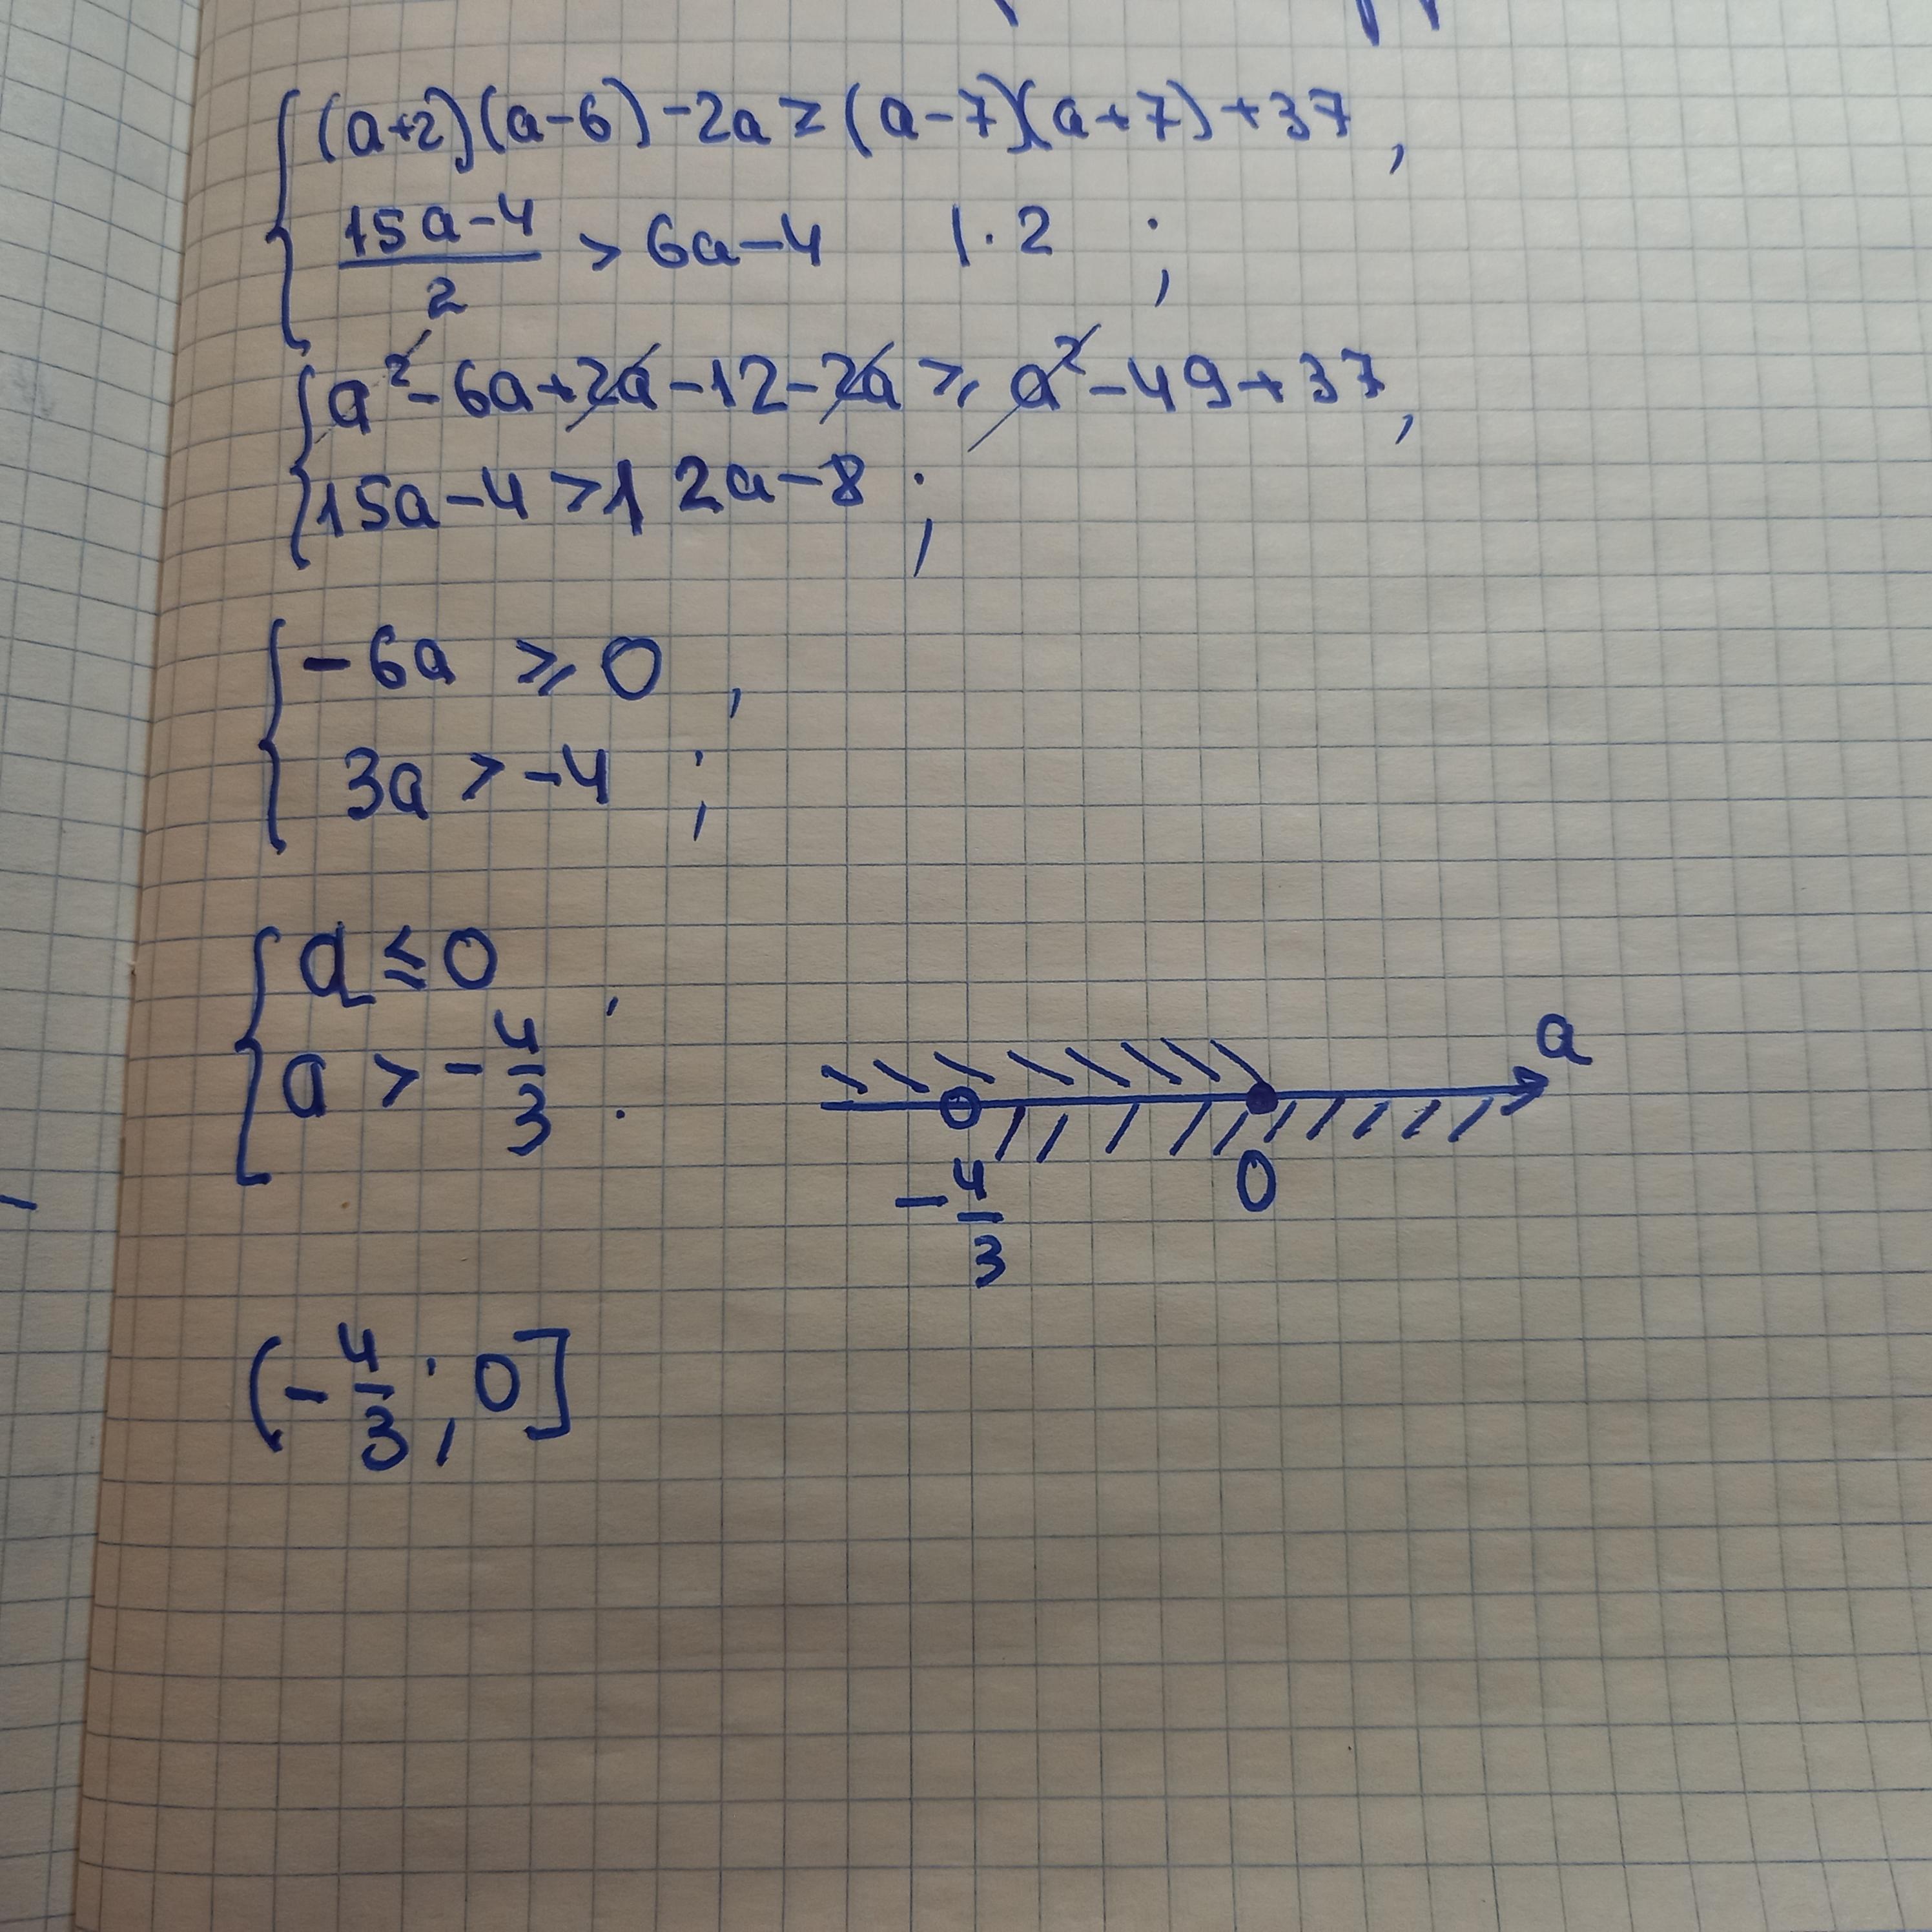 (a+2)(a-6)-2a≥(a-7)(a+7)+37,
15a-4/2 > 6a-4 |·2 ;
a²-6a+2a-12-2a ≥ a²-49+37,
15a-4>12a-8 ;
-6a ≥ 0 ,
3a > -4 ;
a ≤ 0 ,
a > -4/3 .
a
-4/3 0
(-4/3 ; 0]